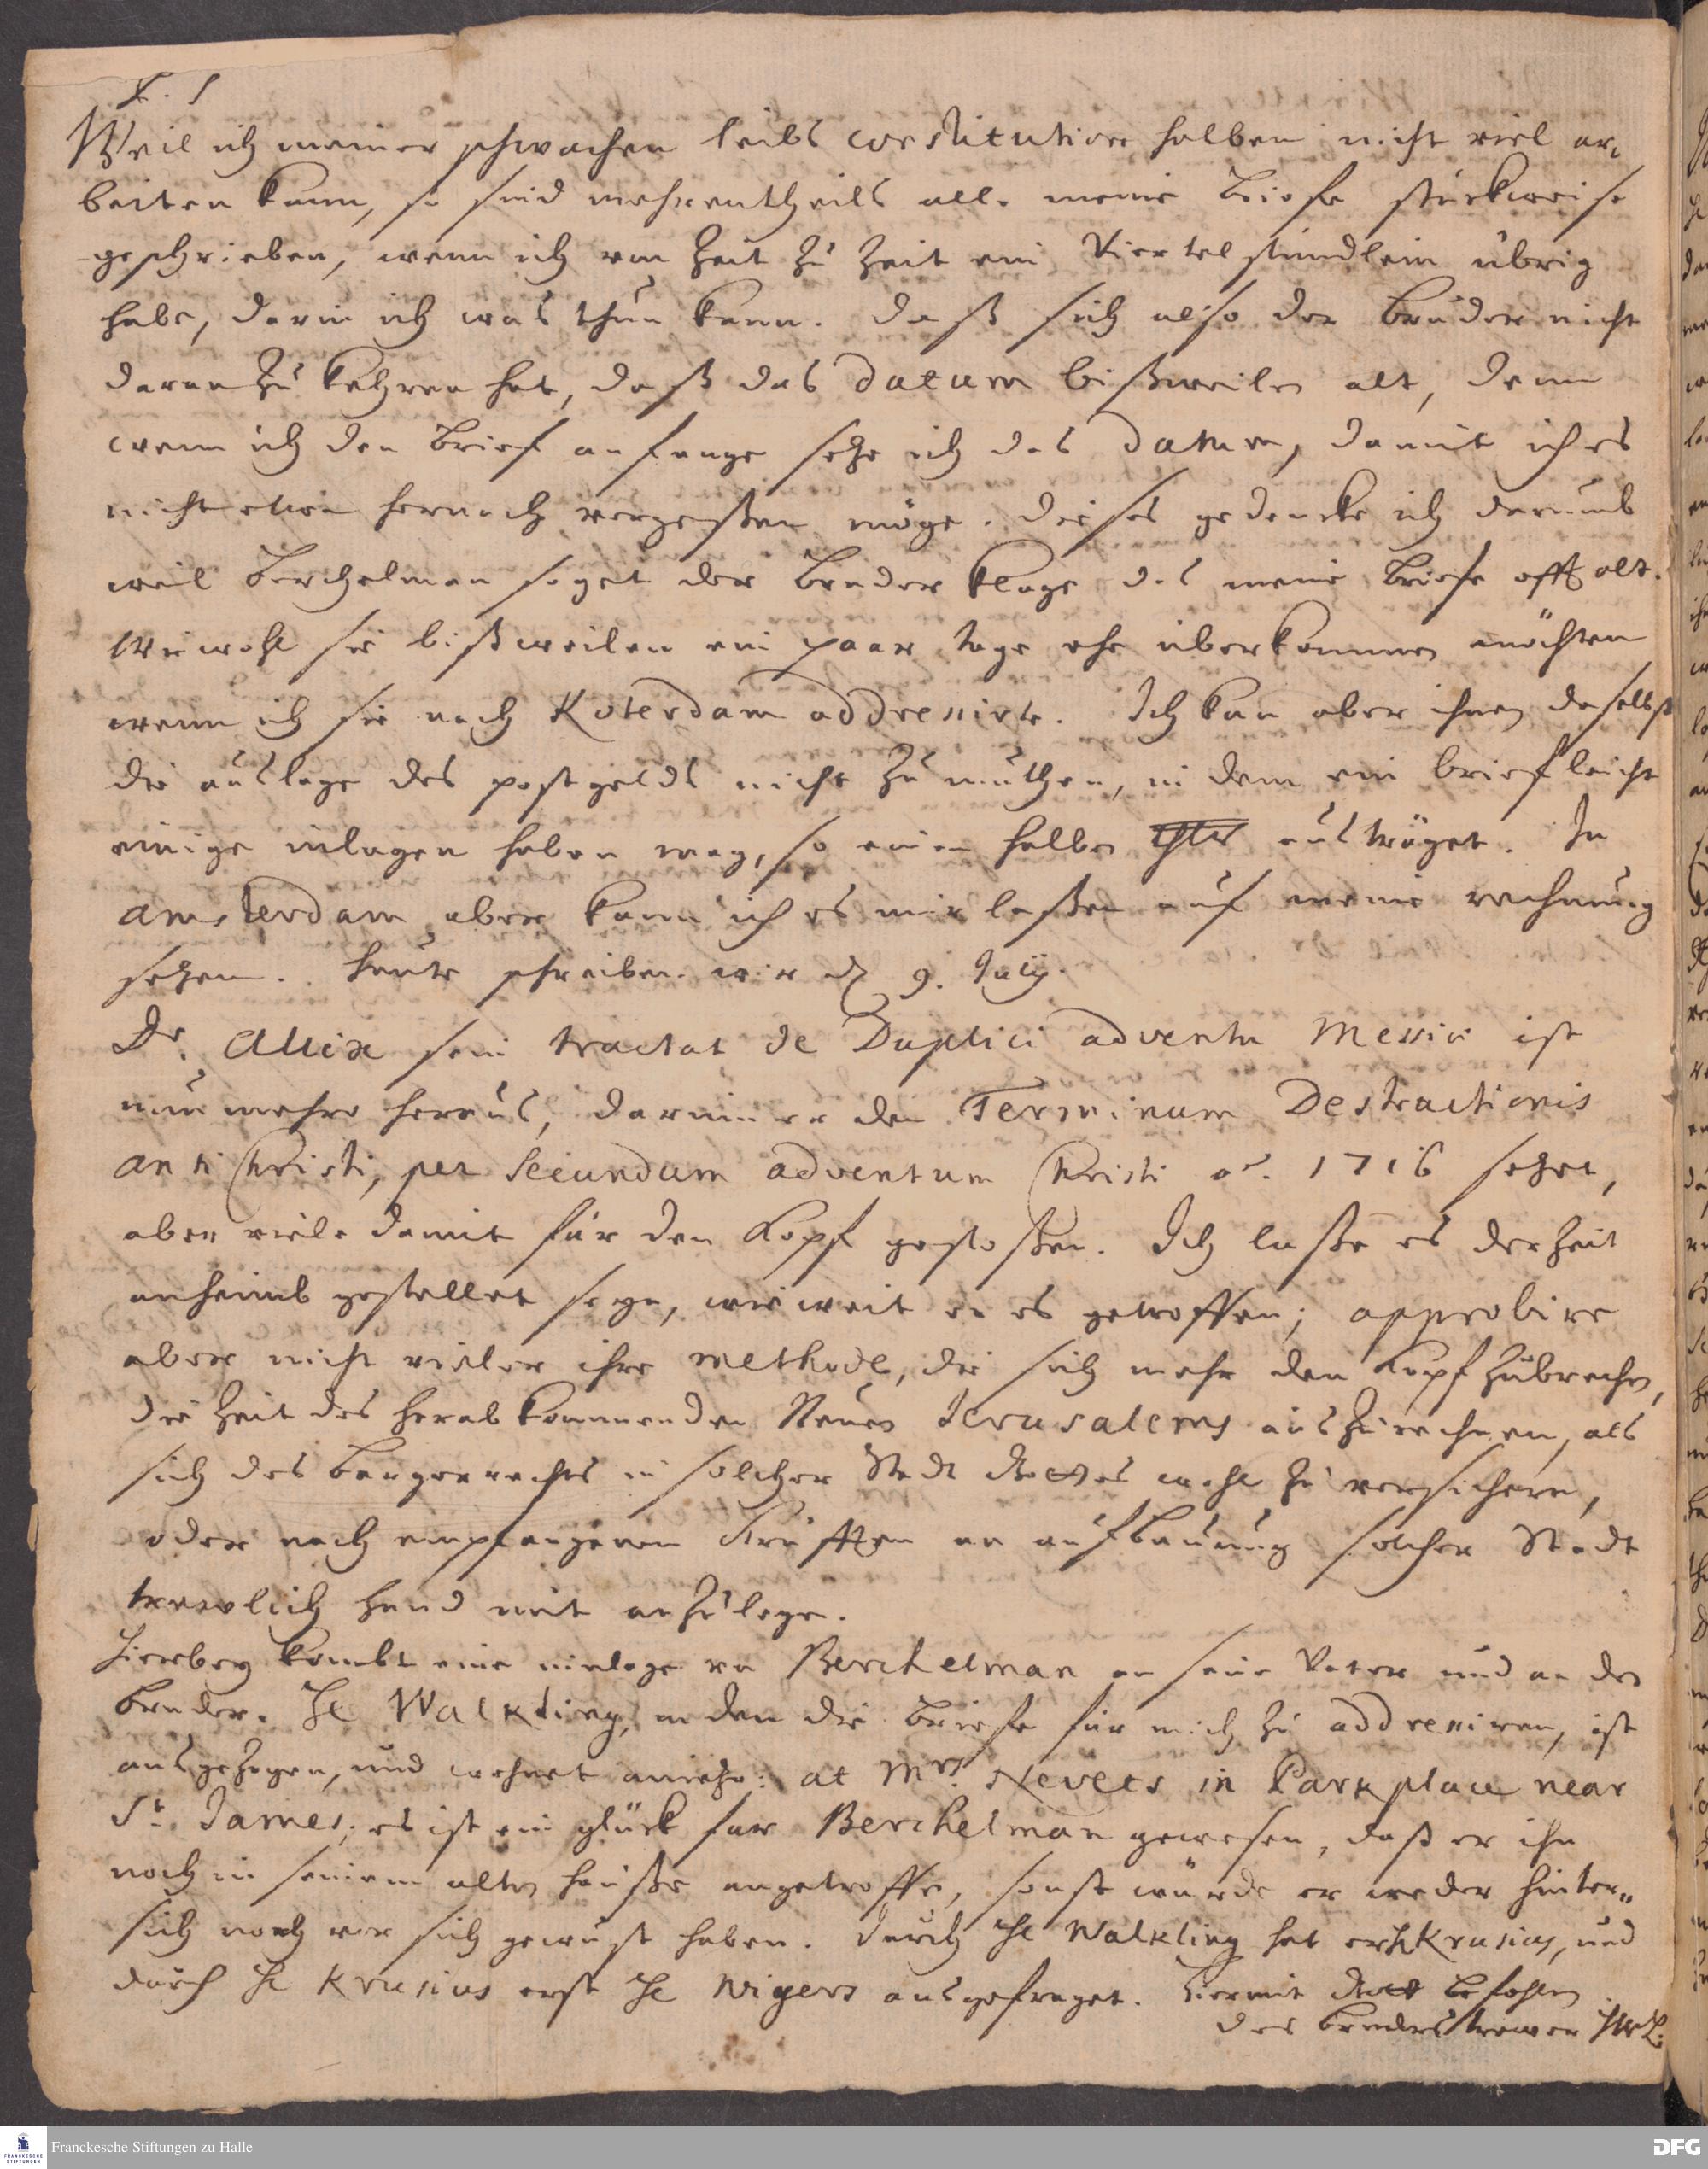 P. S.
Weil ich meiner schwachen leibs constitution halben nicht viel ar-
beiten kann, so sind mehrentheils alle meine Briefe stückweise
geschrieben, wenn ich von Zeit zu Zeit ein Viertelstündlein übrig
habe, darin ich was thun kann. Daß sich also der Bruder nicht
daran zu kehren hat, daß das datum bißweilen alt, denn
wenn ich den Brief anfange setze ich das datum, damit ich es
nicht etwa hernach vergeßen möge. Dieses gedencke ich darumb
weil Berchelman saget der Bruder klage das meine Briefe offt alt.
Wiewohl sie bißweilen ein paar tage ehe überkommen möchten
wenn ich sie nach Roterdam addressirte. Ich kan aber ihnen daselbst
die auslage des postgelds nicht zumuthen, in dem ein brief leicht
einige inlagen haben mag, so einen halben thlr austräget. In
Amsterdam aber kann ich es mir laßen auf meine rechnung
setzen. Heute schreiben wir den 9. Julij.
Dr. Allix sein tractat de Duplici adventu Messiae ist
nunmehro heraus, darinn er den Terminum Destructionis
Antichristi, per secundum adventum Christi ao. 1716 setzet,
aber viele damit für den Kopf gestoßen. Ich laße es der Zeit
anheimb gestellet seyn, wie weit er es getroffen; approbire
aber nicht vieler ihre methode, die sich mehr den Kopf zubrechen,
die Zeit des herabkommenden Neuen Jerusalems auszurechnen, als
sich des Burgerrechts in solcher Stadt Gottes wohl zu versichern,
oder nach empfangenen Kräfften an aufbauung solcher Stadt
trewlich hand mit anzulegen.
Hierbey kombt eine einlage von Berchelman an seine Vater und an den
Bruder. H. Walkling, an den die Briefe für mich zu addressiren, ist
ausgezogen, und wohnet anietzo: at Mrs. Nevets in Park place near
St. James; es ist ein glück für Berchelman gewesen, daß er ihn
noch in seinem alten hauße angetroffen, sonst würde er weder hinter-
sich noch vor sich gewust haben. Durch H. Walkling hat er H. Krusius, und
durch H. Krusius erst H. Wigers ausgefraget. Hiermit Gott befohlen
des Bruders trewer HWL.
Franckesche Stiftungen zu Halle
DFG